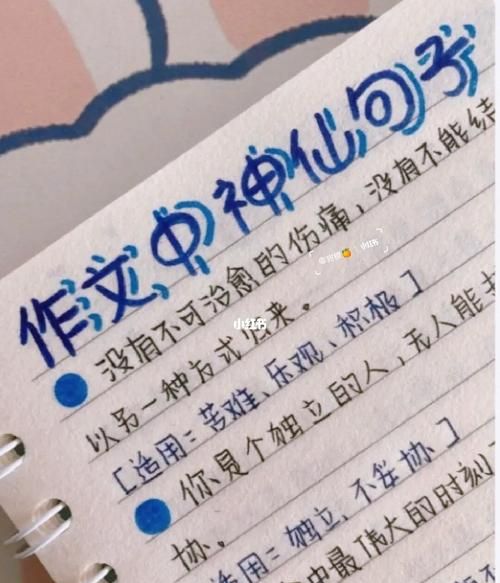 作文中神仙句子
没有不可治愈的伤痛，没有不能结
以另一种方式归来。
[适用：苦难、乐观、积极]
你是个独立的人，无人能
[适用：独立、不妥协]
协。
中最伟大的时刻
小红书
小红书